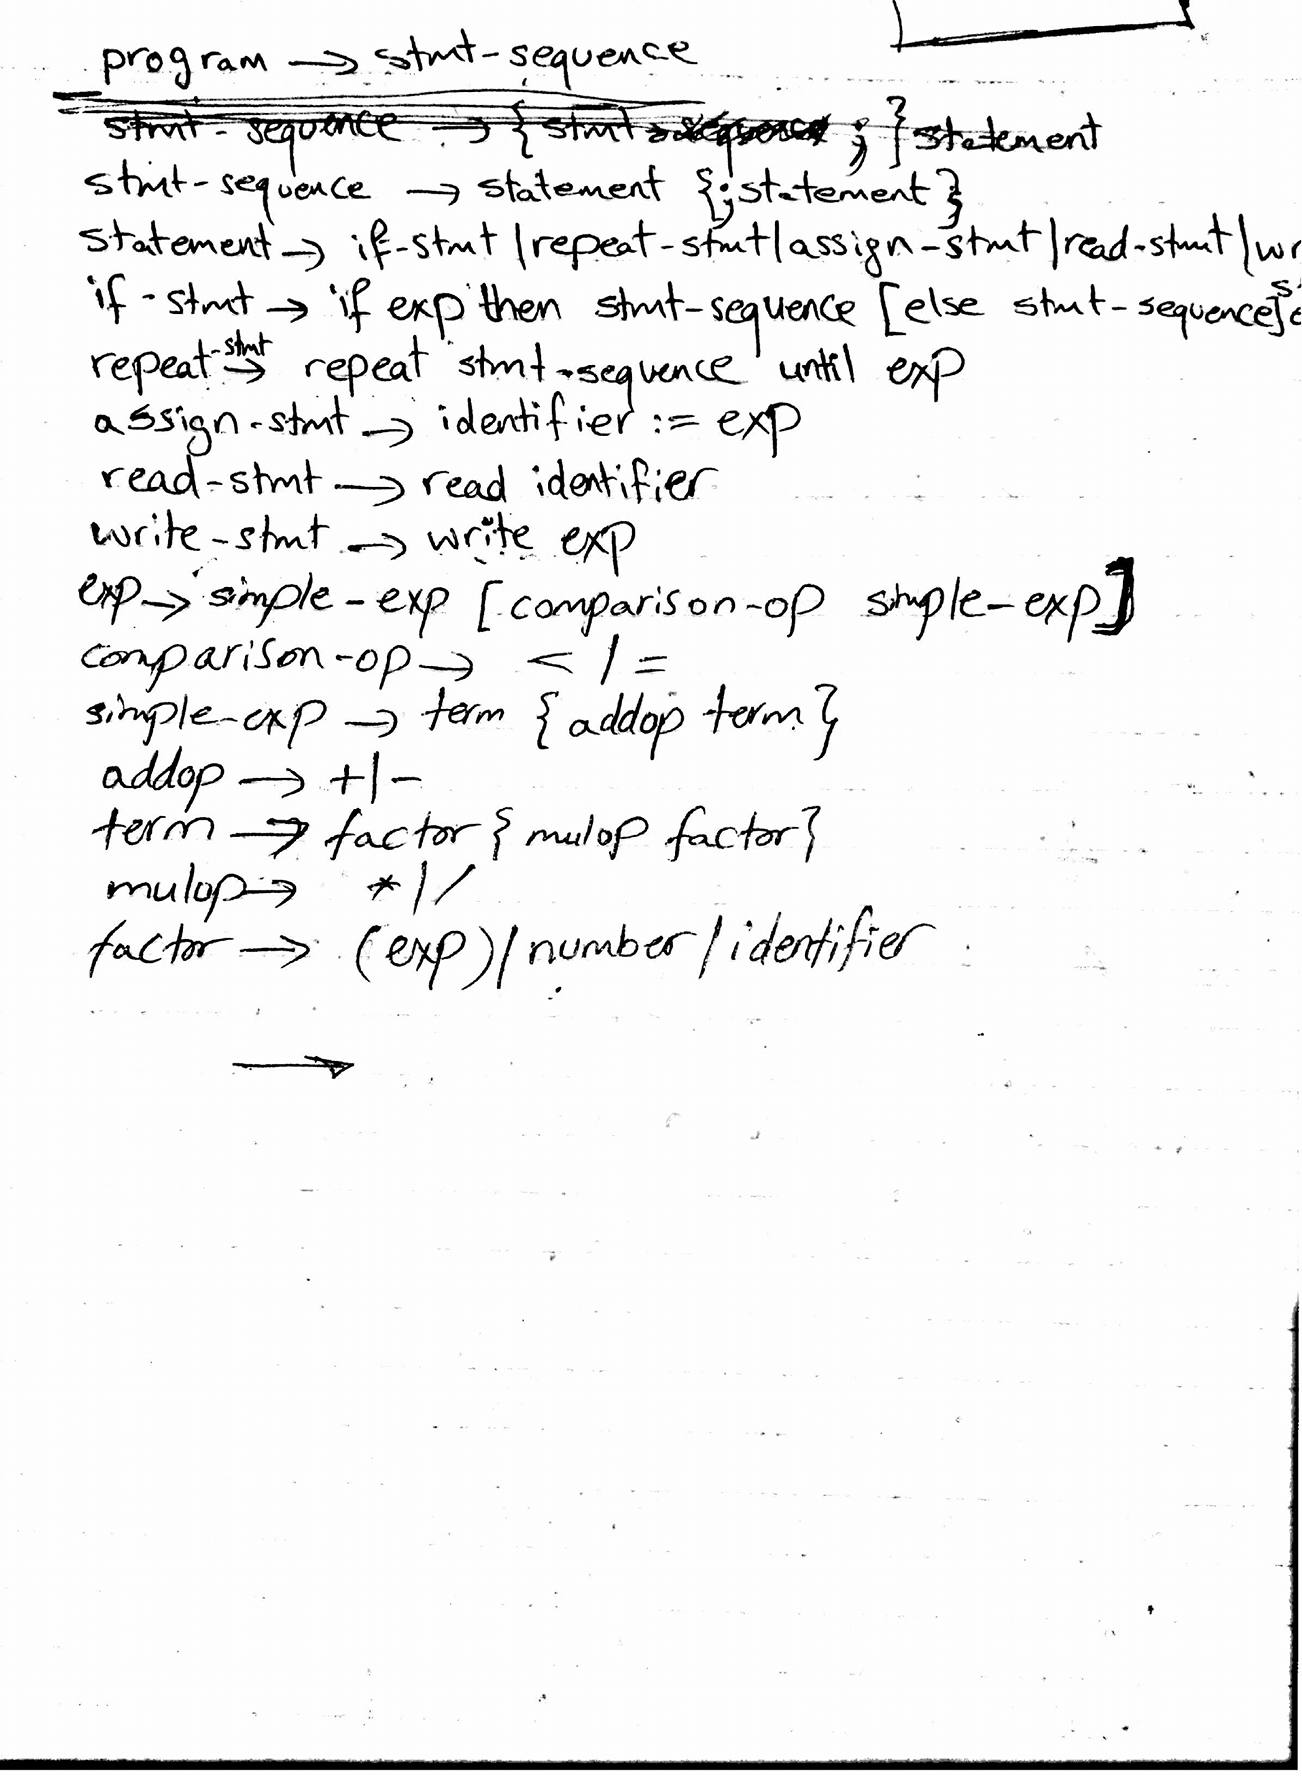 program → stmt-sequence
stmt-sequence → { stmt-sequence ; } statement
stmt-sequence → statement {;statement}
statement → if-stmt | repeat-stmt | assign-stmt | read-stmt | wr
if-stmt → if exp then stmt-sequence [else stmt-sequence]
repeat-stmt → repeat stmt-sequence until exp
assign-stmt → identifier := exp
read-stmt → read identifier
write-stmt → write exp
exp → simple-exp [comparison-op simple-exp]
comparison-op → < | =
simple-exp → term {addop term}
addop → + | -
term → factor {mulop factor}
mulop → * | /
factor → (exp) | number | identifier
→